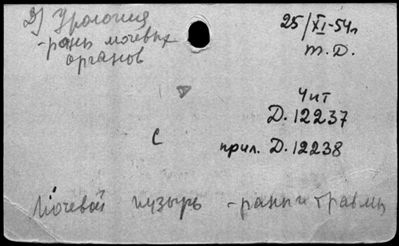 2) Урология
-раны мочевых
органов
25/XI-54г
т.Д.
Чит
Д.12237
С
прил. Д.12238
Мочевой пузырь - раны и травмы